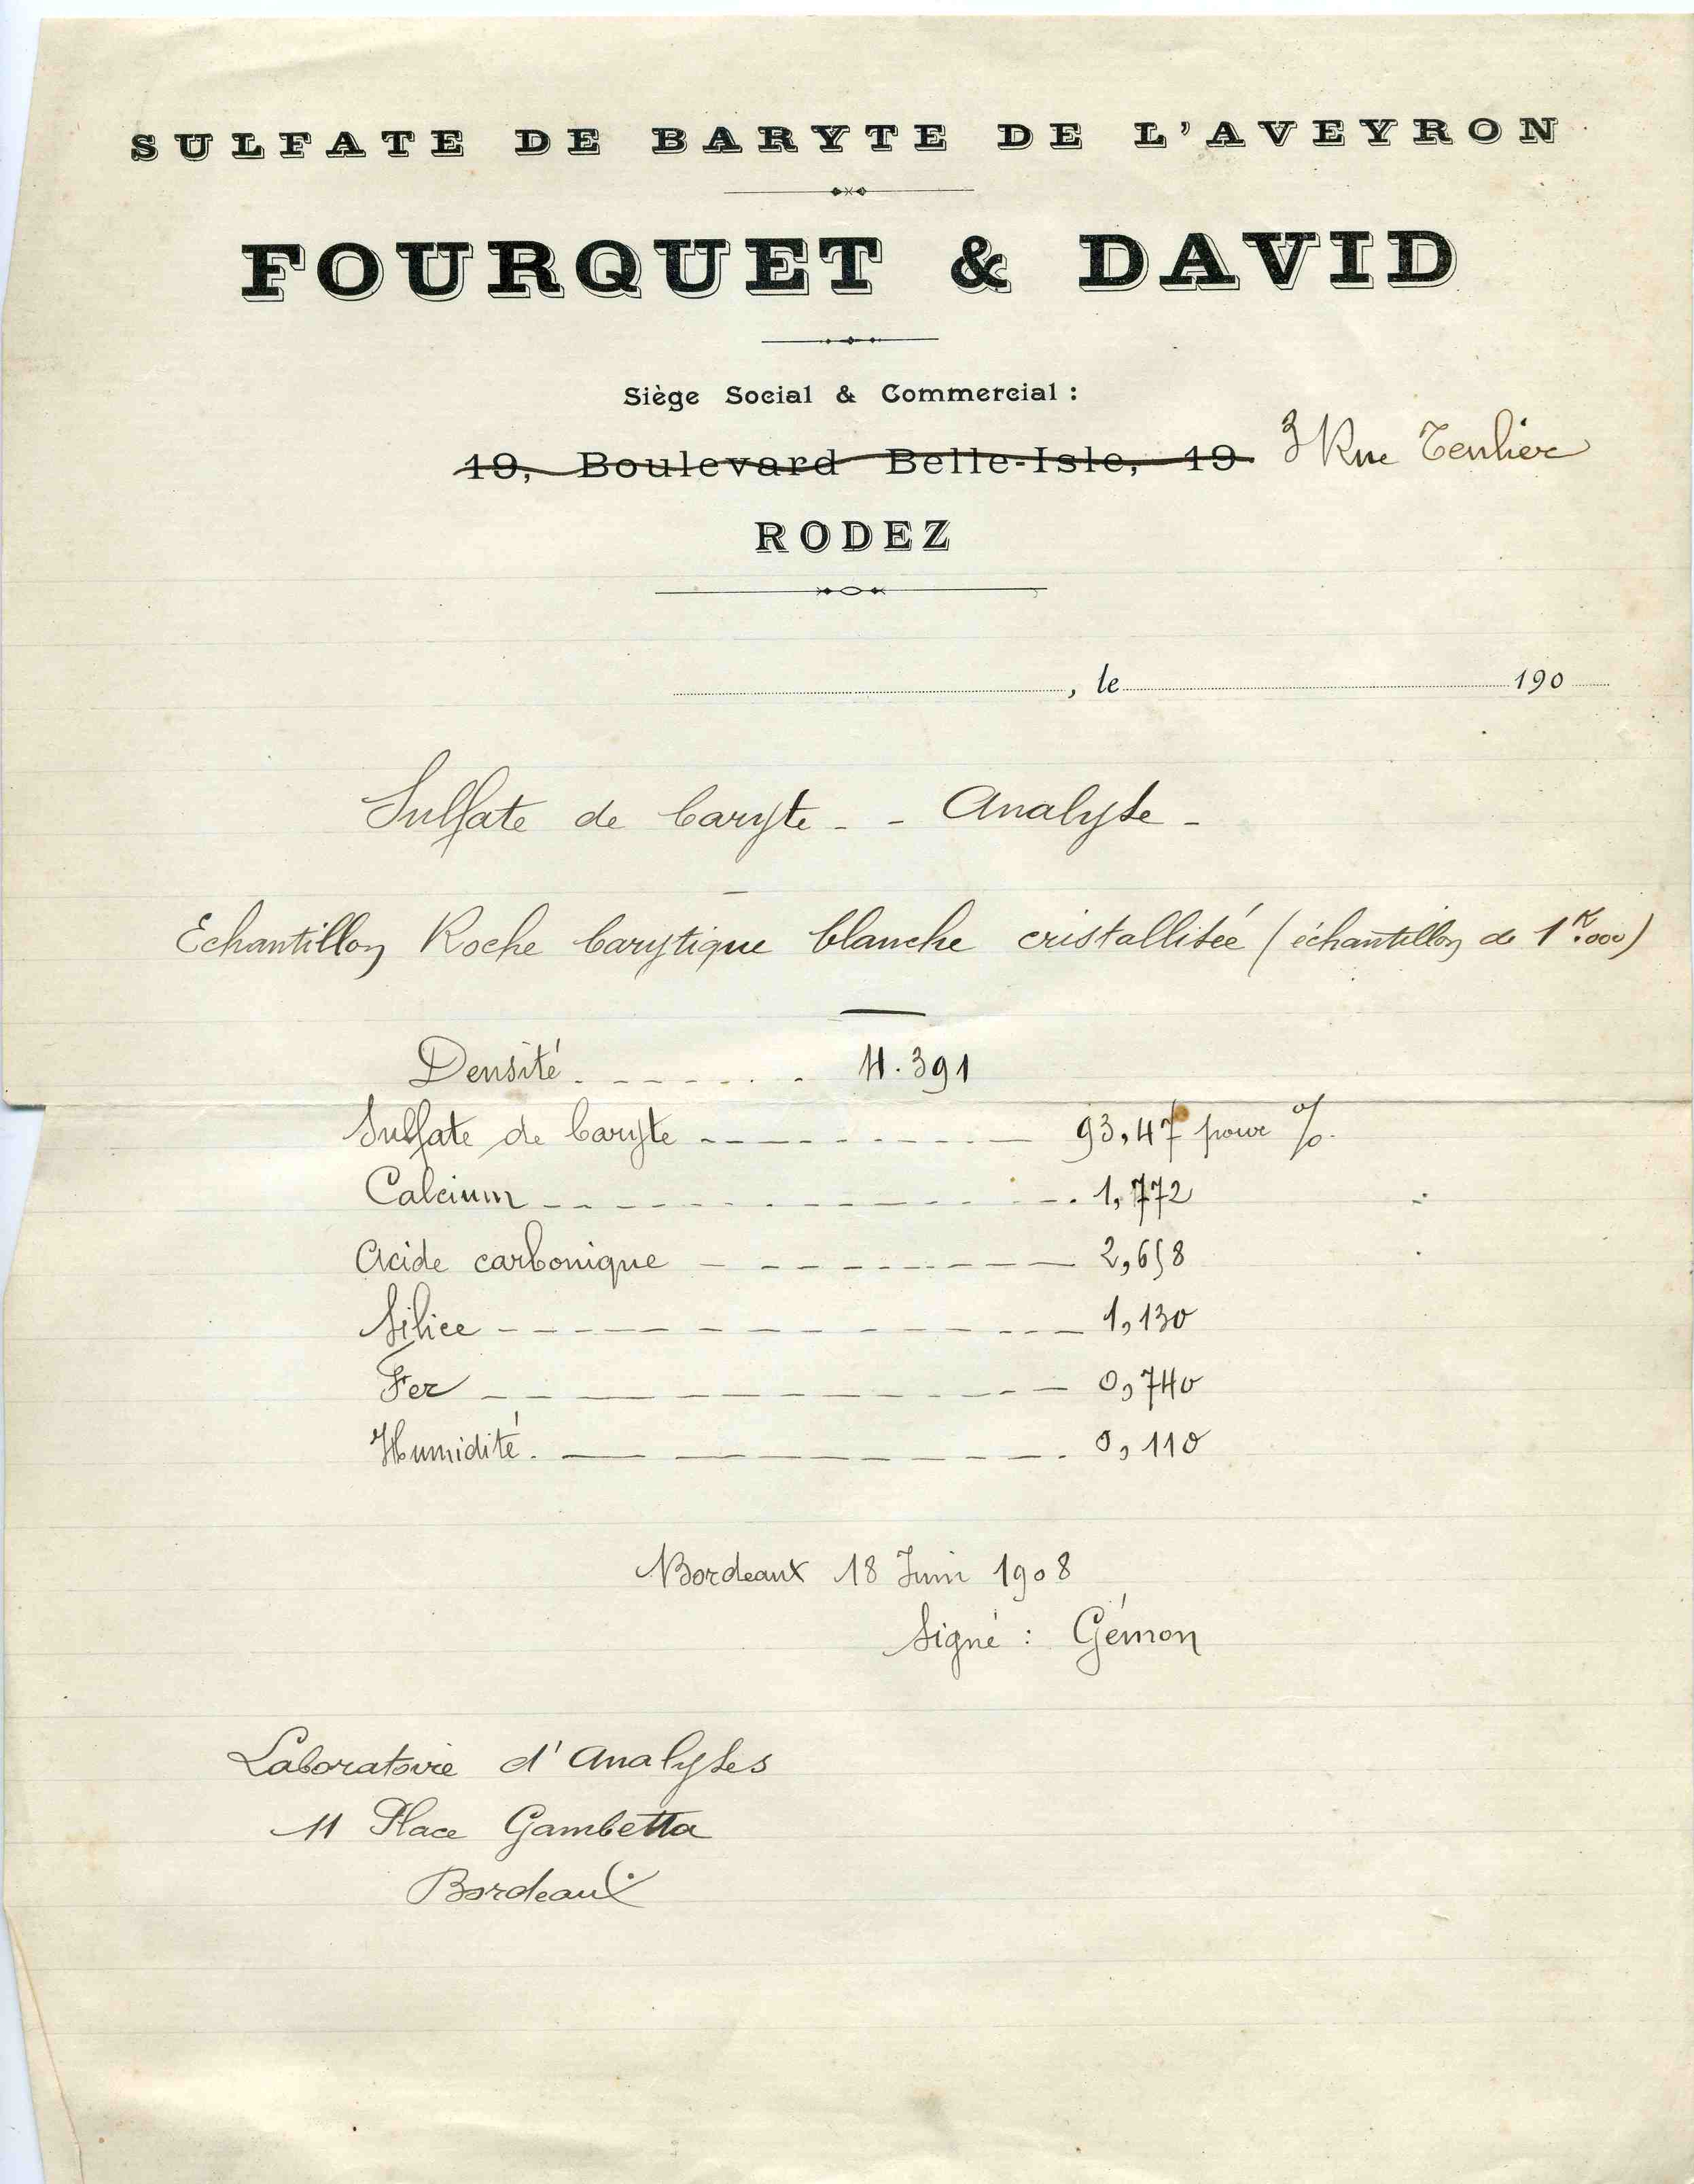 SULFATE DE BARYTE DE L'AVEYRON
FOURQUET & DAVID
Siège Social & Commercial :
19, Boulevard Belle-Isle, 19 3 Rue Tenlier
RODEZ
, le 190
Sulfate de baryte - - Analyse -
Echantillon Roche barytique blanche cristallisée (échantillon de 1K.000)
Densité 4.391
Sulfate de baryte 93,47 pour %
Calcium 1,772
Acide carbonique 2,658
Silice 1,130
Fer 0,740
Humidité 0,110
Bordeaux 18 Juin 1908
Signé : Gémon
Laboratoire d'Analyses
11 Place Gambetta
Bordeaux